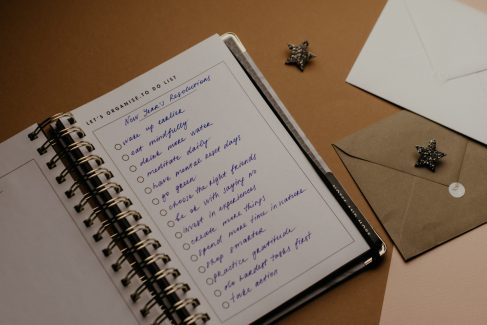 LET'S ORGANISE, TO DO LIST
New Year's Resolutions
wake up earlier
eat mindfully
drink more water
meditate daily
have mental reset days
go green
choose the right friends
be ok with saying no
invest in experiences
create more things
spend more time in nature
shop smarter
practice gratitude
do hardest tasks first
take action